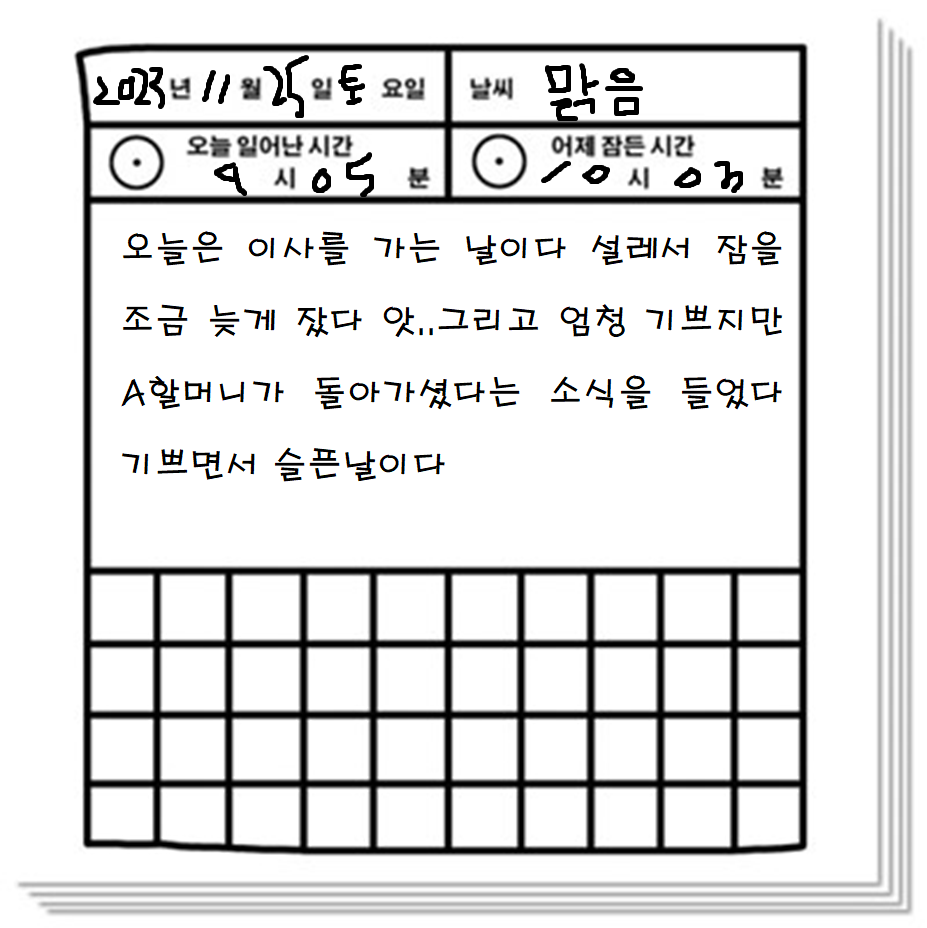 2023년 11월 25일 토 요일 날씨 맑음
오늘 일어난 시간 어제 잠든 시간
9 시 05 분 10 시 03 분
오늘은 이사를 가는 날이다 설레서 잠을
조금 늦게 잤다 앗,,그리고 엄청 기쁘지만
A할머니가 돌아가셨다는 소식을 들었다
기쁘면서 슬픈날이다